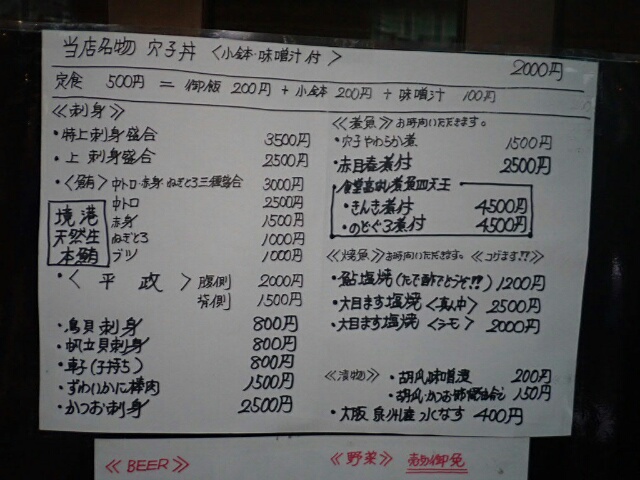 当店名物 穴子丼 〈小鉢・味噌汁付〉 2000円
定食 500円 = 御飯 200円 + 小鉢 200円 + 味噌汁 100円
≪刺身≫
・特上刺身盛合 3500円
・上 刺身盛合 2500円
・〈鮪〉中トロ・赤身・ねぎとろ三種盛合 3000円
境港
天然生
本鮪
中トロ 2500円
赤身 1500円
ねぎとろ 1000円
ブツ 1000円
・〈平政〉腹側 2000円
背側 1500円
・鳥貝刺身 800円
・帆立貝刺身 800円
・車子(子持ち) 800円
・ずわいかに棒肉 1500円
・かつお刺身 2500円
≪煮魚≫お時間いただきます。
・穴子やわらか煮 1500円
・赤目春煮付 2500円
食堂高はし煮魚四天王
・きんき煮付 4500円
・のどぐろ煮付 4500円
≪焼魚≫お時間いただきます。≪コげます!!≫
・鮎塩焼(たで酢でどうぞ!!) 1200円
・大目ます塩焼〈真ん中〉 2500円
・大目ます塩焼〈シモ〉 2000円
≪漬物≫・胡瓜味噌漬 200円
・胡瓜・かつお 150円
・大阪 泉州産 水なす 400円
≪BEER≫
≪野菜≫ 売切御免